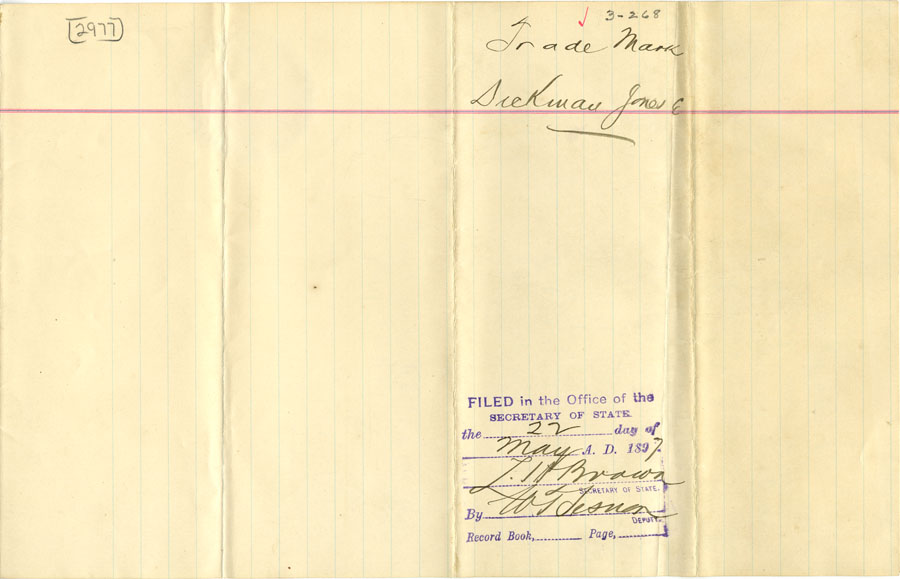 [2977]
3-268
Trade Mark
Dickman Jones C
FILED in the Office of the
SECRETARY OF STATE.
the 22 day of
May A. D. 1897.
L. H. Brown
SECRETARY OF STATE.
By
DEPUTY.
Record Book, Page,